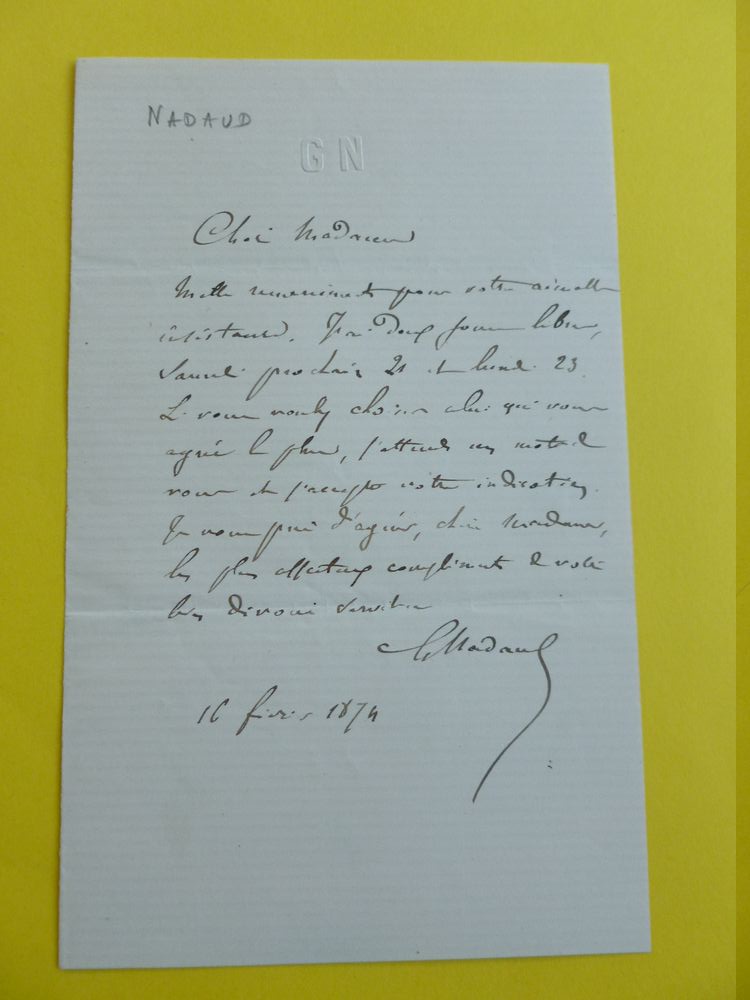 NADAUD
GN
Chère Madame
Mille remerciements pour votre aimable
insistance. J'ai deux jours libres,
Samedi prochain 21 et lundi 23.
Si vous voulez choisir celui qui vous
agrée le plus, j'attends un mot de
vous et j'accepte votre indication.
Je vous prie d'agréer, chère Madame,
les plus affectueux compliments de votre
bien dévoué serviteur
G Nadaud
16 février 1874